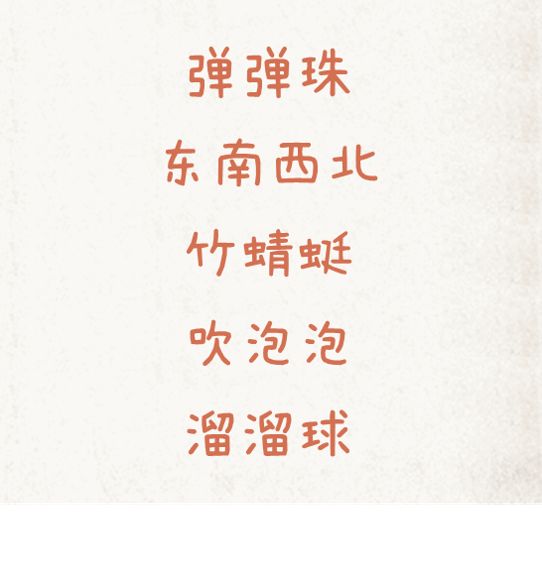 弹弹珠
东南西北
竹蜻蜓
吹泡泡
溜溜球